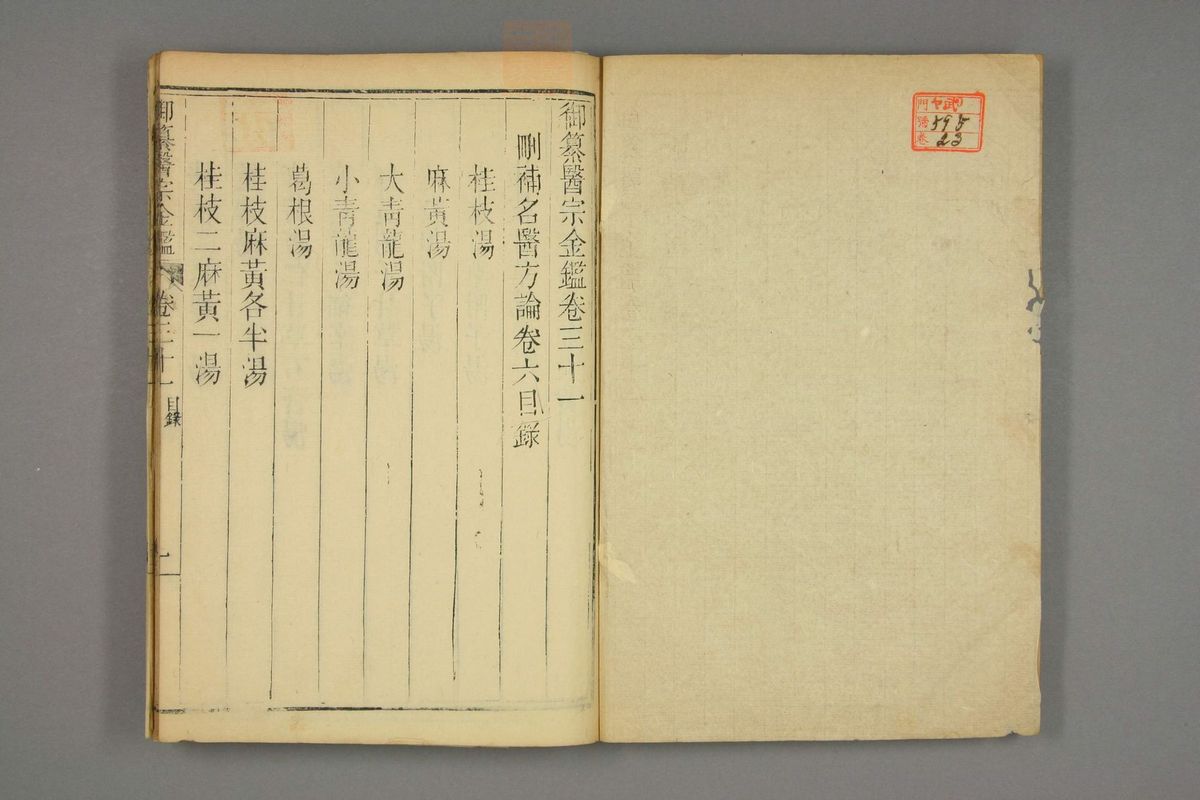 門 ヤ武
號 595
卷 23
御纂醫宗金鑑卷三十一
刪補名醫方論卷六目錄
桂枝湯
麻黃湯
大青龍湯
小青龍湯
葛根湯
桂枝麻黃各半湯
桂枝二麻黃一湯
御纂醫宗金鑑 卷三十一 目錄